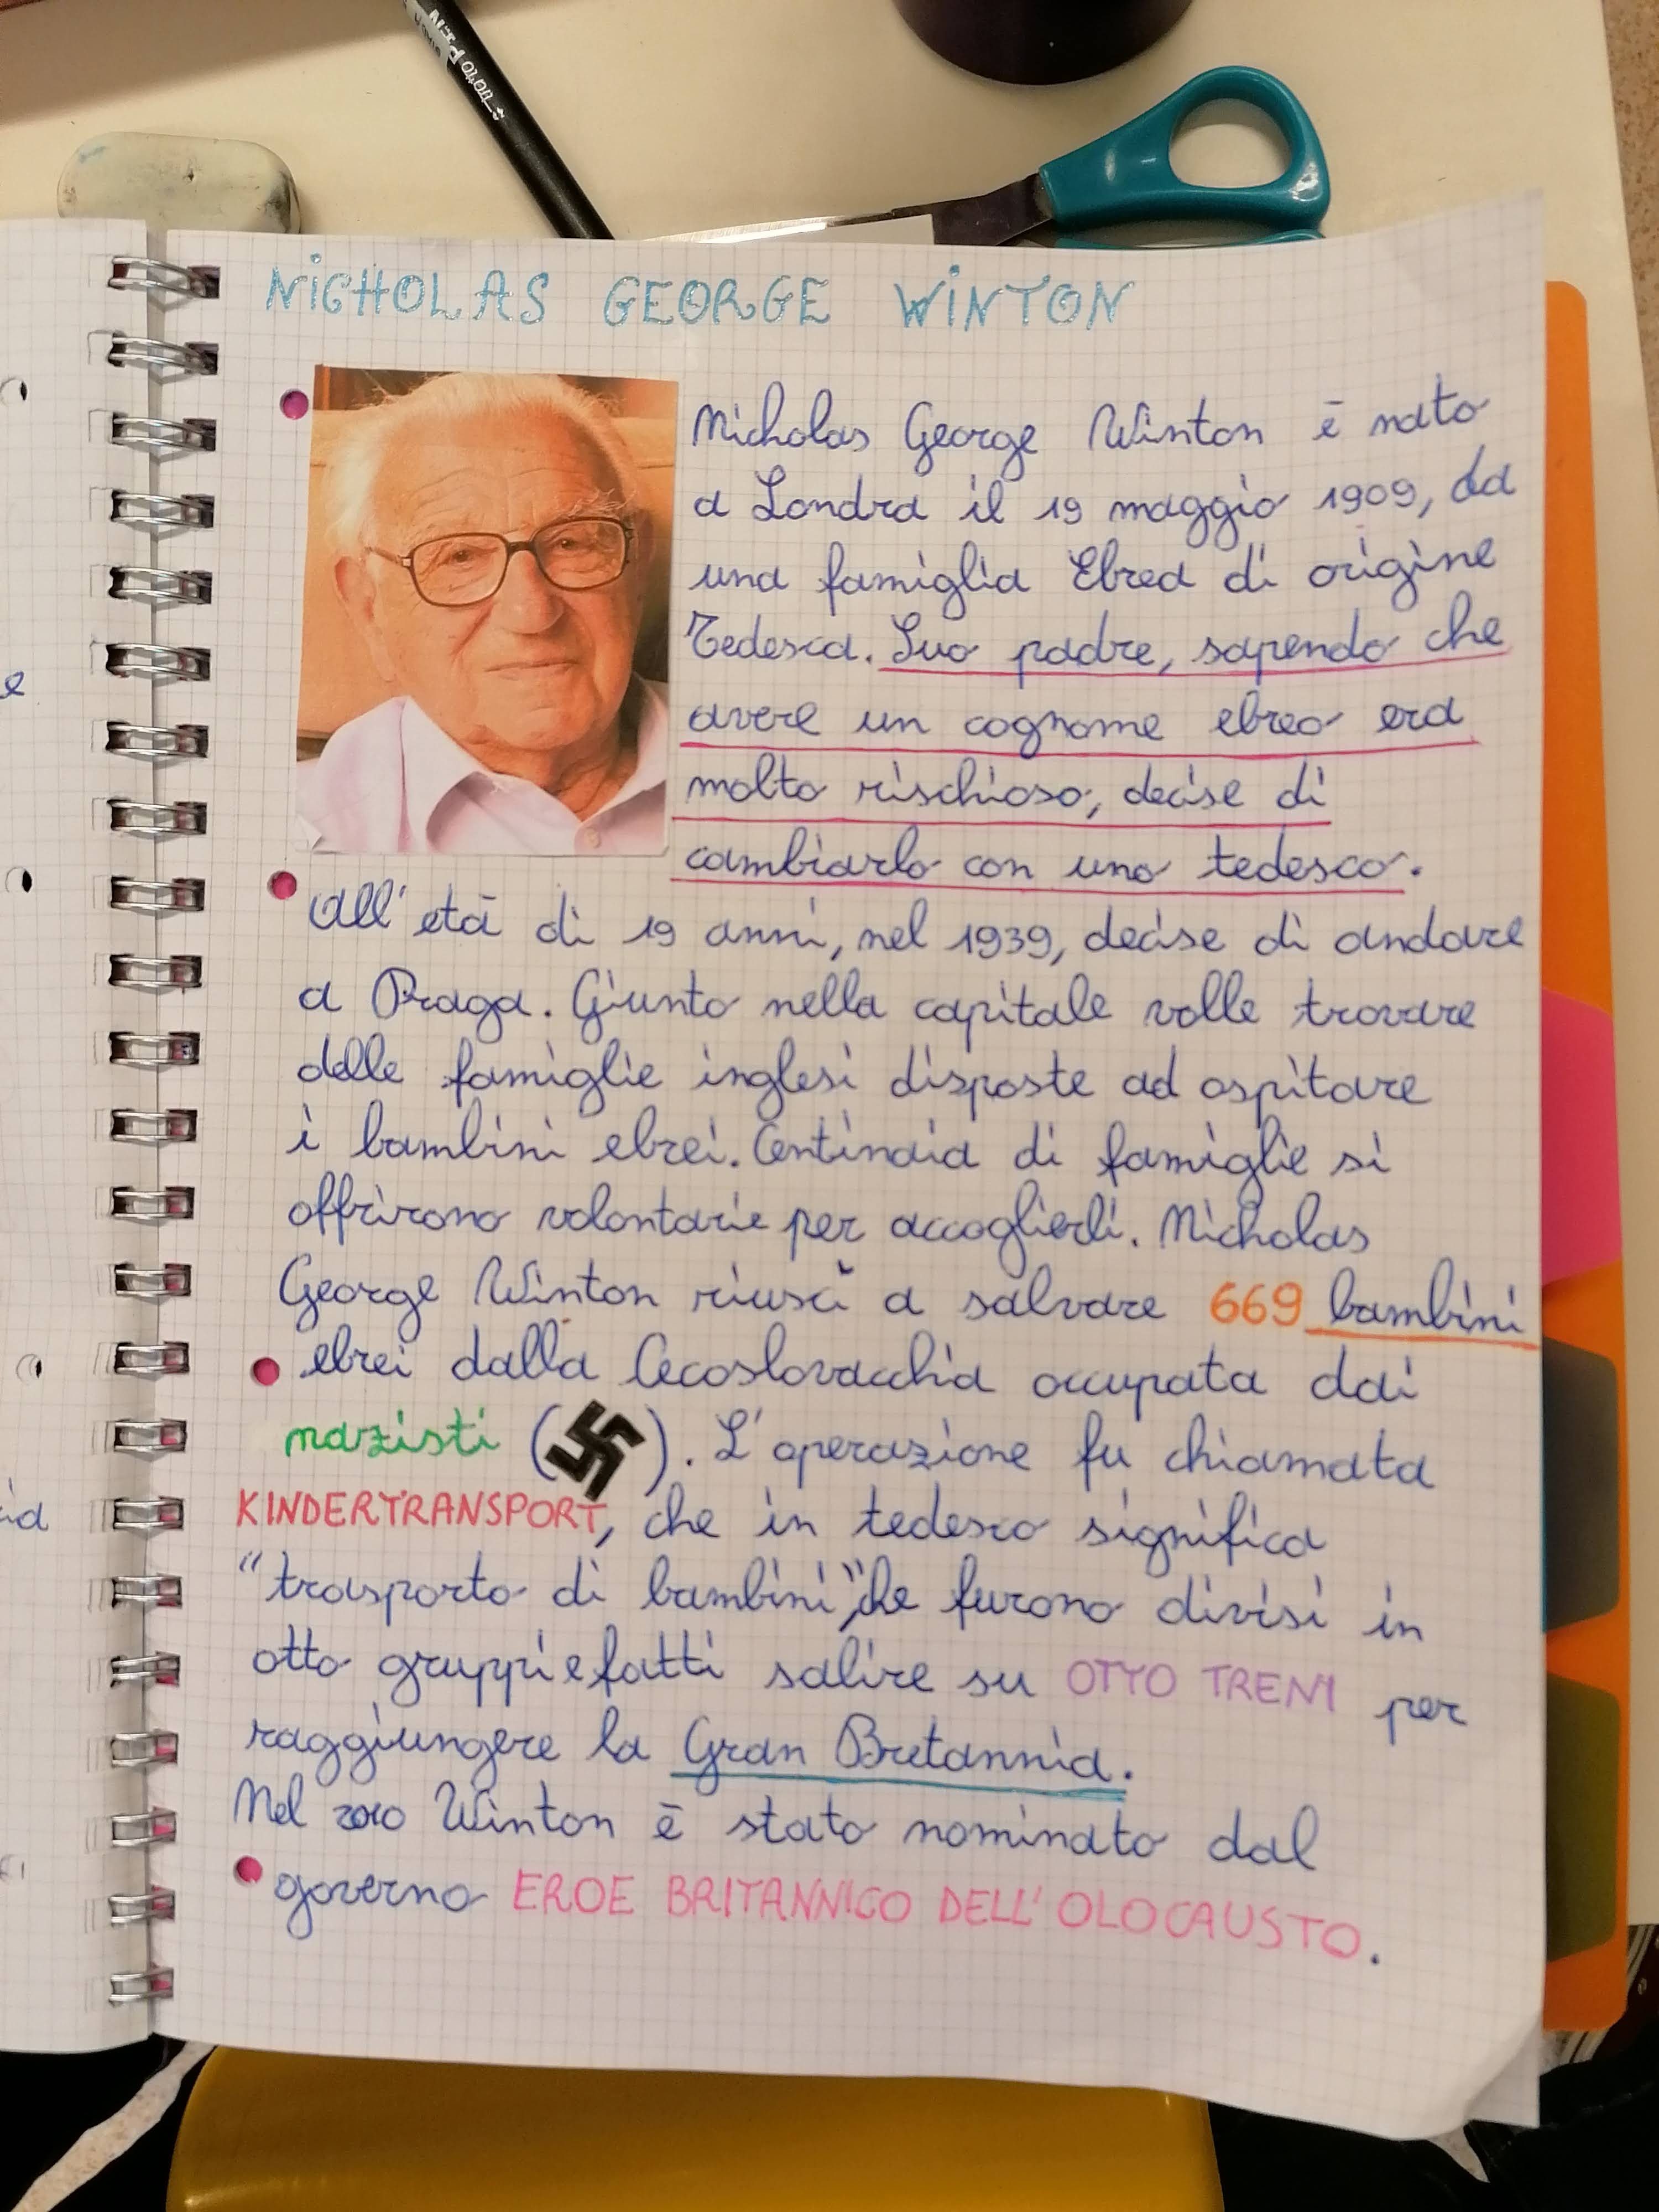 NICHOLAS GEORGE WINTON
Nicholas George Winton è nato
a Londra il 19 maggio 1909, da
una famiglia Ebrea di origine
Tedesca. Suo padre, sapendo che
avere un cognome ebreo era
molto rischioso, decise di
cambiarlo con uno tedesco.
All'età di 19 anni, nel 1939, decise di andare
a Praga. Giunto nella capitale volle trovare
delle famiglie inglesi disposte ad ospitare
i bambini ebrei. Centinaia di famiglie si
offrirono volontarie per accoglierli. Nicholas
George Winton riuscì a salvare 669 bambini
ebrei dalla Cecoslovacchia occupata dai
nazisti (卐). L'operazione fu chiamata
KINDERTRANSPORT, che in tedesco significa
"trasporto di bambini", che furono divisi in
otto gruppi e fatti salire su OTTO TRENI per
raggiungere la Gran Bretannia.
Nel 2010 Winton è stato nominato dal
governo EROE BRITANNICO DELL'OLOCAUSTO.